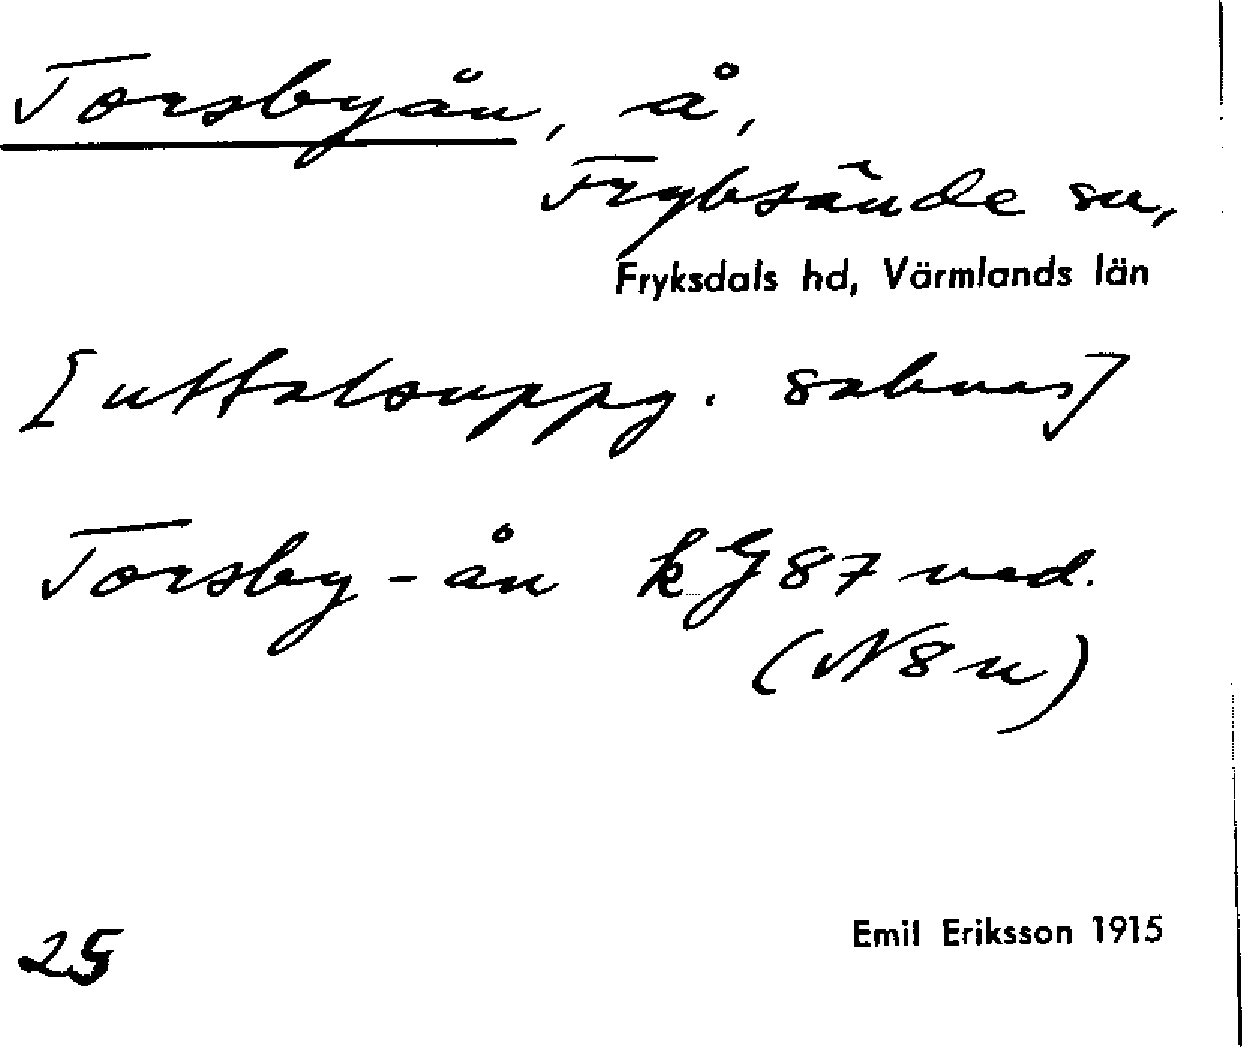 Torsbyån, å,
Fryksände sn,
Fryksdals hd, Värmlands län
[uttalsuppg. saknas]
Torsby-ån kG 87 ned.
(N 8 u)
25
Emil Eriksson 1915